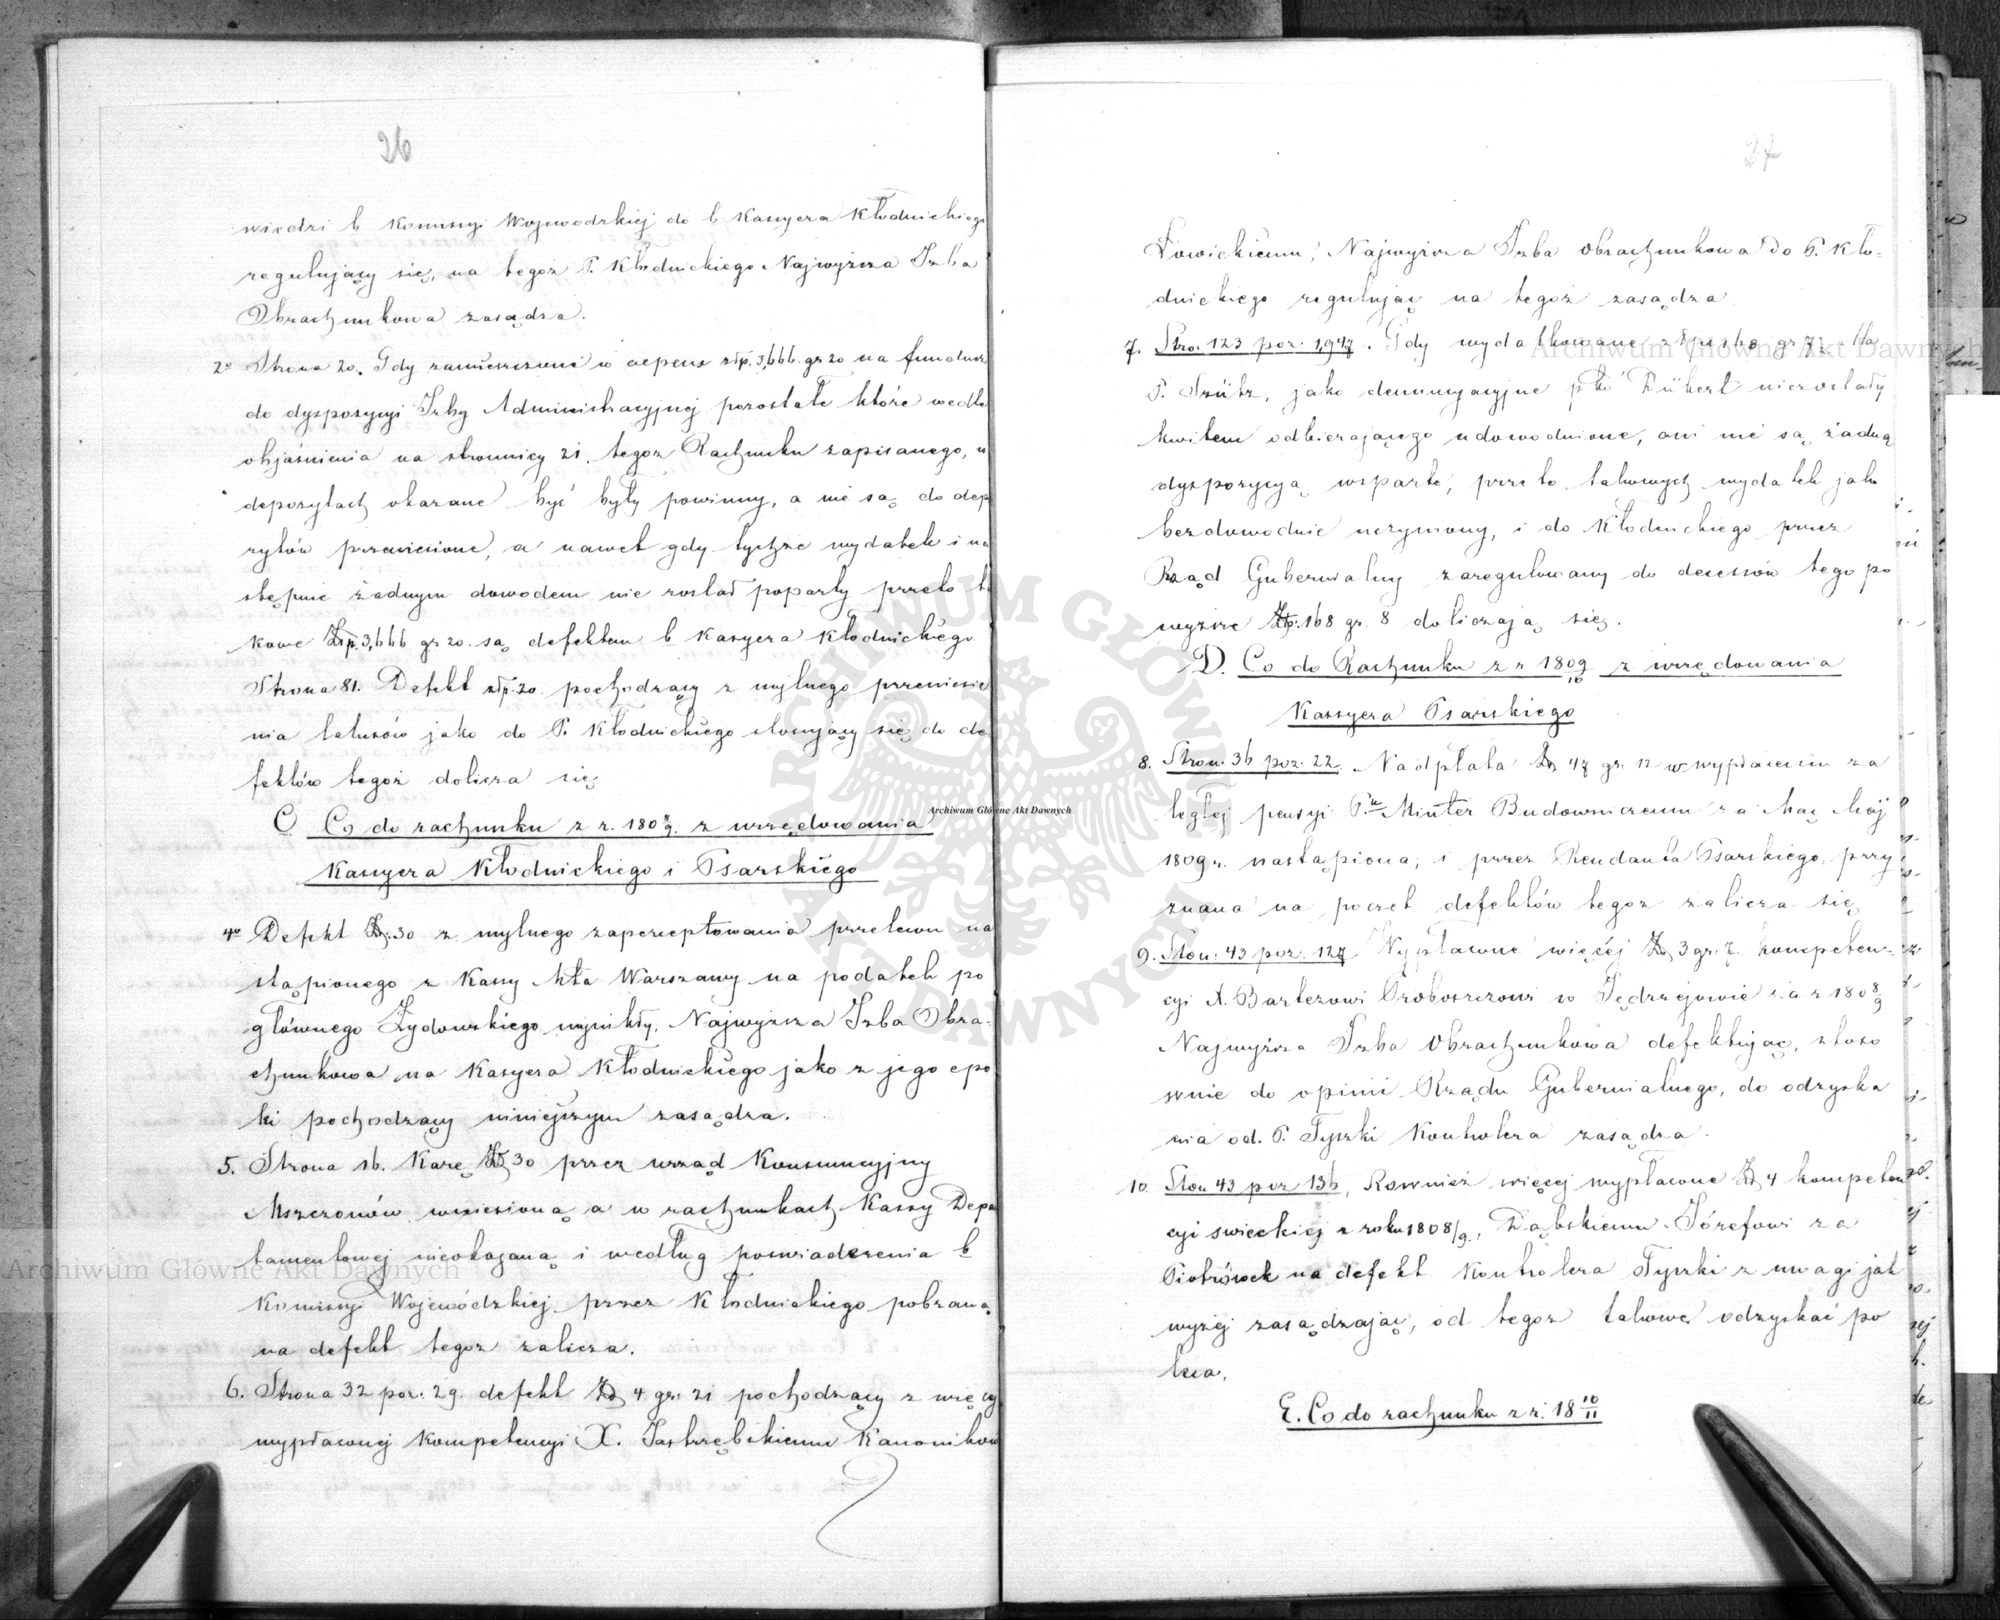 26
wiedzi b Komissyi Wojewodzkiej do b Kassyera Kłodnickiego
regulujący się, na tegoż P. Kłodnickiego Najwyższa Izba
Obrachunkowa zasądza.
2o Strona 20. Gdy zamieszczone w expens złp. 3,666. gr 20 na fundusz
do dyspozycyi Izby Administracyjnej pozostałe które wedle
objaśnienia na stronnicy 21. tegoż Rachunku zapisanego, w
depozytach okazane być były powinny, a nie są do depo
zytów przeniesione, a nawet gdy tychże wydatek i na
stępnie żadnym dowodem nie został poparty przeto ta
kowe Złp. 3,666 gr 20. są defektem b Kassyera Kłodnickiego
Strona 81. Defekt złp. 20. pochodzący z mylnego przeniesie
nia latusów jako do P. Kłodnickiego stosujący się do de
fektów tegoż dolicza się
C Co do rachunku z r. 1808/9. z urzędowania
Kassyera Kłodnickiego i Psarskiego
4o Defekt Zł. 30 z mylnego zaperceptowania przelewu na
stąpionego z Kassy Mta Warszawy na podatek po
głównego Żydowskiego wynikły, Najwyższa Izba Obra-
chunkowa na Kassyera Kłodnickiego jako z jego epo
ki pochodzący niniejszym zasądza.
5. Strona 16. Karę Zł 30 przez urząd Konsumcyjny
Mszczonów wniesioną a w rachunkach Kassy Depar
tamentowej nieokazaną i według poswiadczenia b
Komissyi Wojewódzkiej przez Kłodnickiego pobraną
na defekt tegoż zalicza.
6. Strona 32 poz. 29. defekt Zł 4 gr: 21 pochodzący z więcej
wypłaconej Kompetencyi X. Jastrzębskiemu Kanonikow
27
Łowickiemu, Najwyższa Izba Obrachunkowa do P. Kło-
dnickiego regulując na tegoż zasądza
7. Stro. 123 poz. 1,947. Gdy wydatkowane złp. 168 gr 7½ dla
P. Szütz, jako denuncyacyjne Rübert niezostały
kwitem odbierającego udowodnione, ani nie są żadną
dyspozycyą wsparte, przeto takowych wydatek jako
bezdowodnie uczyniony, i do Kłodnickiego przez
Rząd Gubernialny zaregulowany do decessów tego po
wyższe Złp. 168 gr. 8 doliczają się.
D. Co do Rachunku z r 1809/10 z urzędowania
Kassyera Psarskiego
8. Stron. 36 poz. 22. Nadpłata Zł 47 gr. 12 w wypłaceniu za
ległej pensyi Pu Minter Budowniczemu za Maj
1809 r. nastąpiona, i przez Rendanta Psarskiego przy
znana na poczet defektów tegoż zalicza się
9. Ston. 43 poz. 127 Wypłacone więcej Zł 3 gr. 7. kompeten-
cyi X. Bartczowi Proboszczowi w Jędrzejowie za r 1808/9
Najwyższa Izba Obrachunkowa defektując, stoso
wnie do opinii Rządu Gubernialnego, do odzyska
nia od P. Tyszki Kontrolera zasądza.
10. Ston 43 poz 136, Rownież więcej wypłacone Zł 4 kompeten
cyi swieckiej z roku 1808/9., Dąbskiemu Józefowi za
Piotrówek na defekt Kontrolera Tyszki z uwagi jak
wyżej zasądzając, od tegoż takowe odzyskać po
leca.
E. Co do rachunku z r. 18 10/11